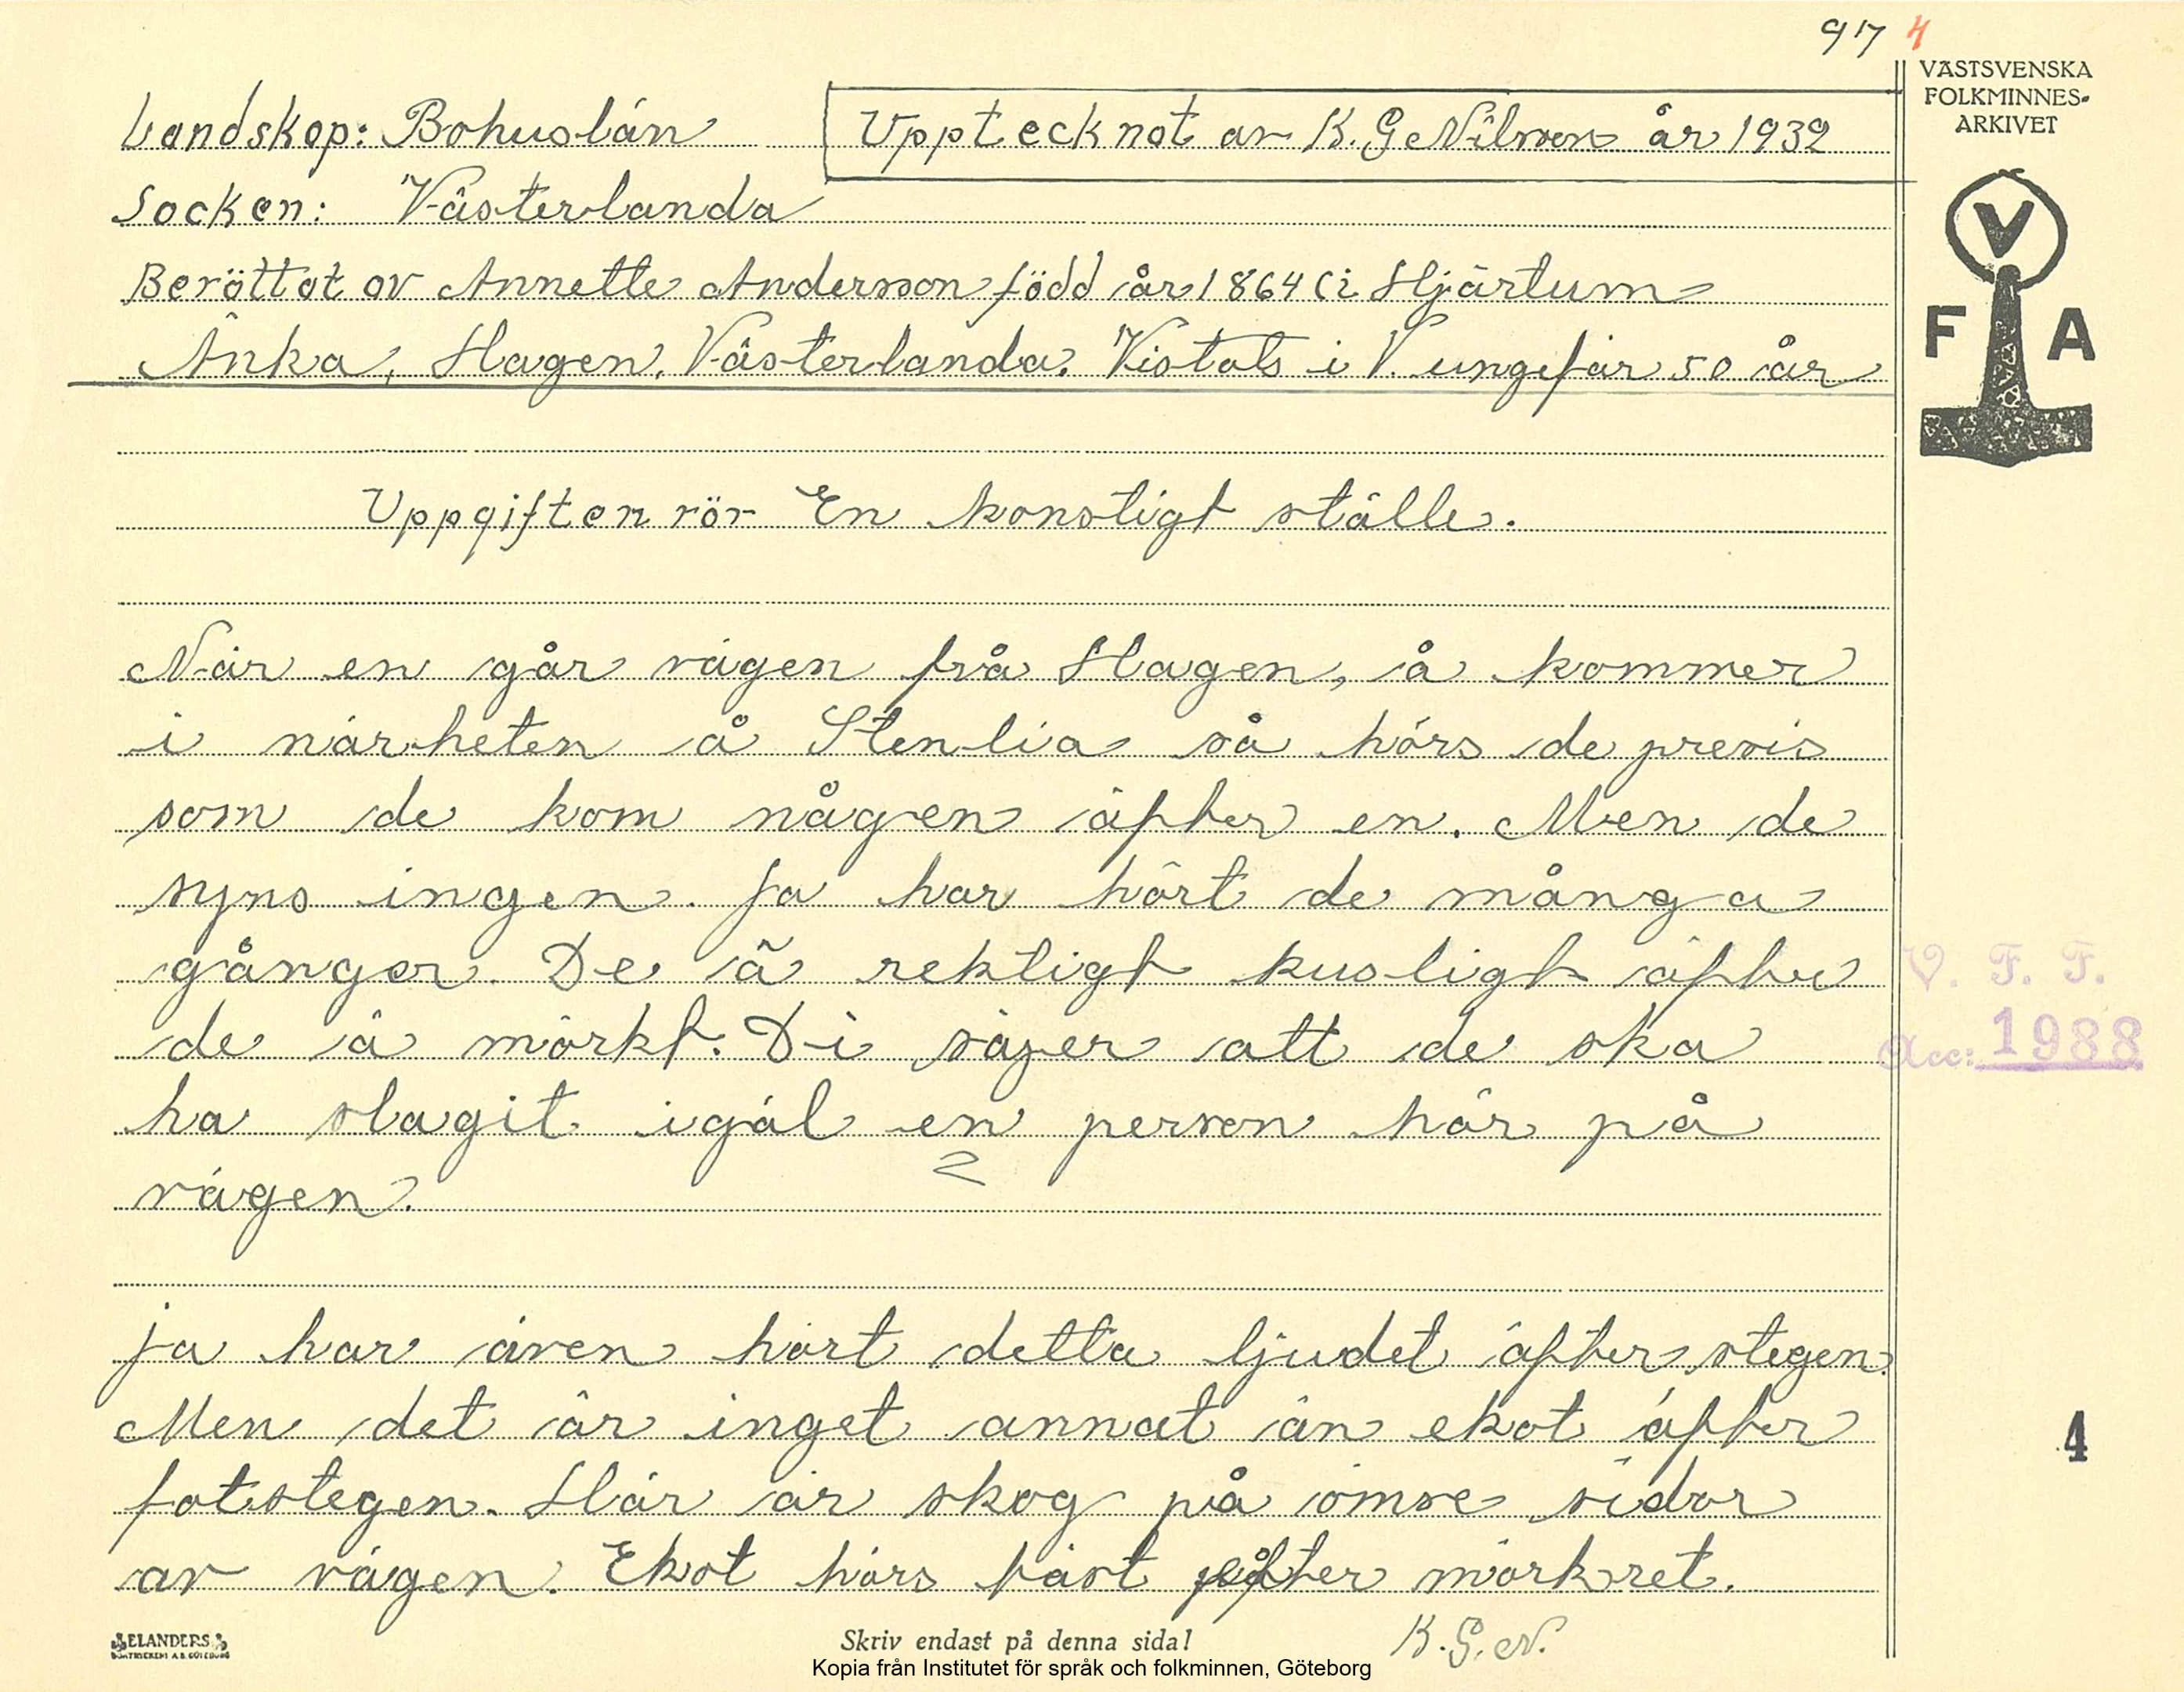 97 4
VÄSTSVENSKA
FOLKMINNES-
ARKIVET
Landskap: Bohuslän
Upptecknat av K. G Nilsson år 1932
Socken: Västerlanda
Berättat av Annette Andersson född år 1864 (i Hjärtum
Änka, Hagen, Västerlanda. Vistats i V. ungefär 50 år
V
F A
Uppgiften rör En konstigt ställe.
När en går vägen frå Hagen, å kommer
i närheten å Stenlia så hörs de presis
som de kom någen äfter en. Men de
syns ingen. Ja har hört de många
gånger. De ä rektigt kusligt äfter
de ä mörkt. Di säger att de ska
ha slagit igäl en person här på
vägen.
V. F. F.
Acc: 1988
Ja har även hört detta ljudet äfter stegen.
Men det är inget annat än ekot äfter
fotstegen. Här är skog på ömse sidor
av vägen. Ekot hörs bäst äfter mörkret.
4
K.G.N.
ELANDERS
BOKTRYCKERI A.B. GÖTEBORG
Skriv endast på denna sida!
Kopia från Institutet för språk och folkminnen, Göteborg